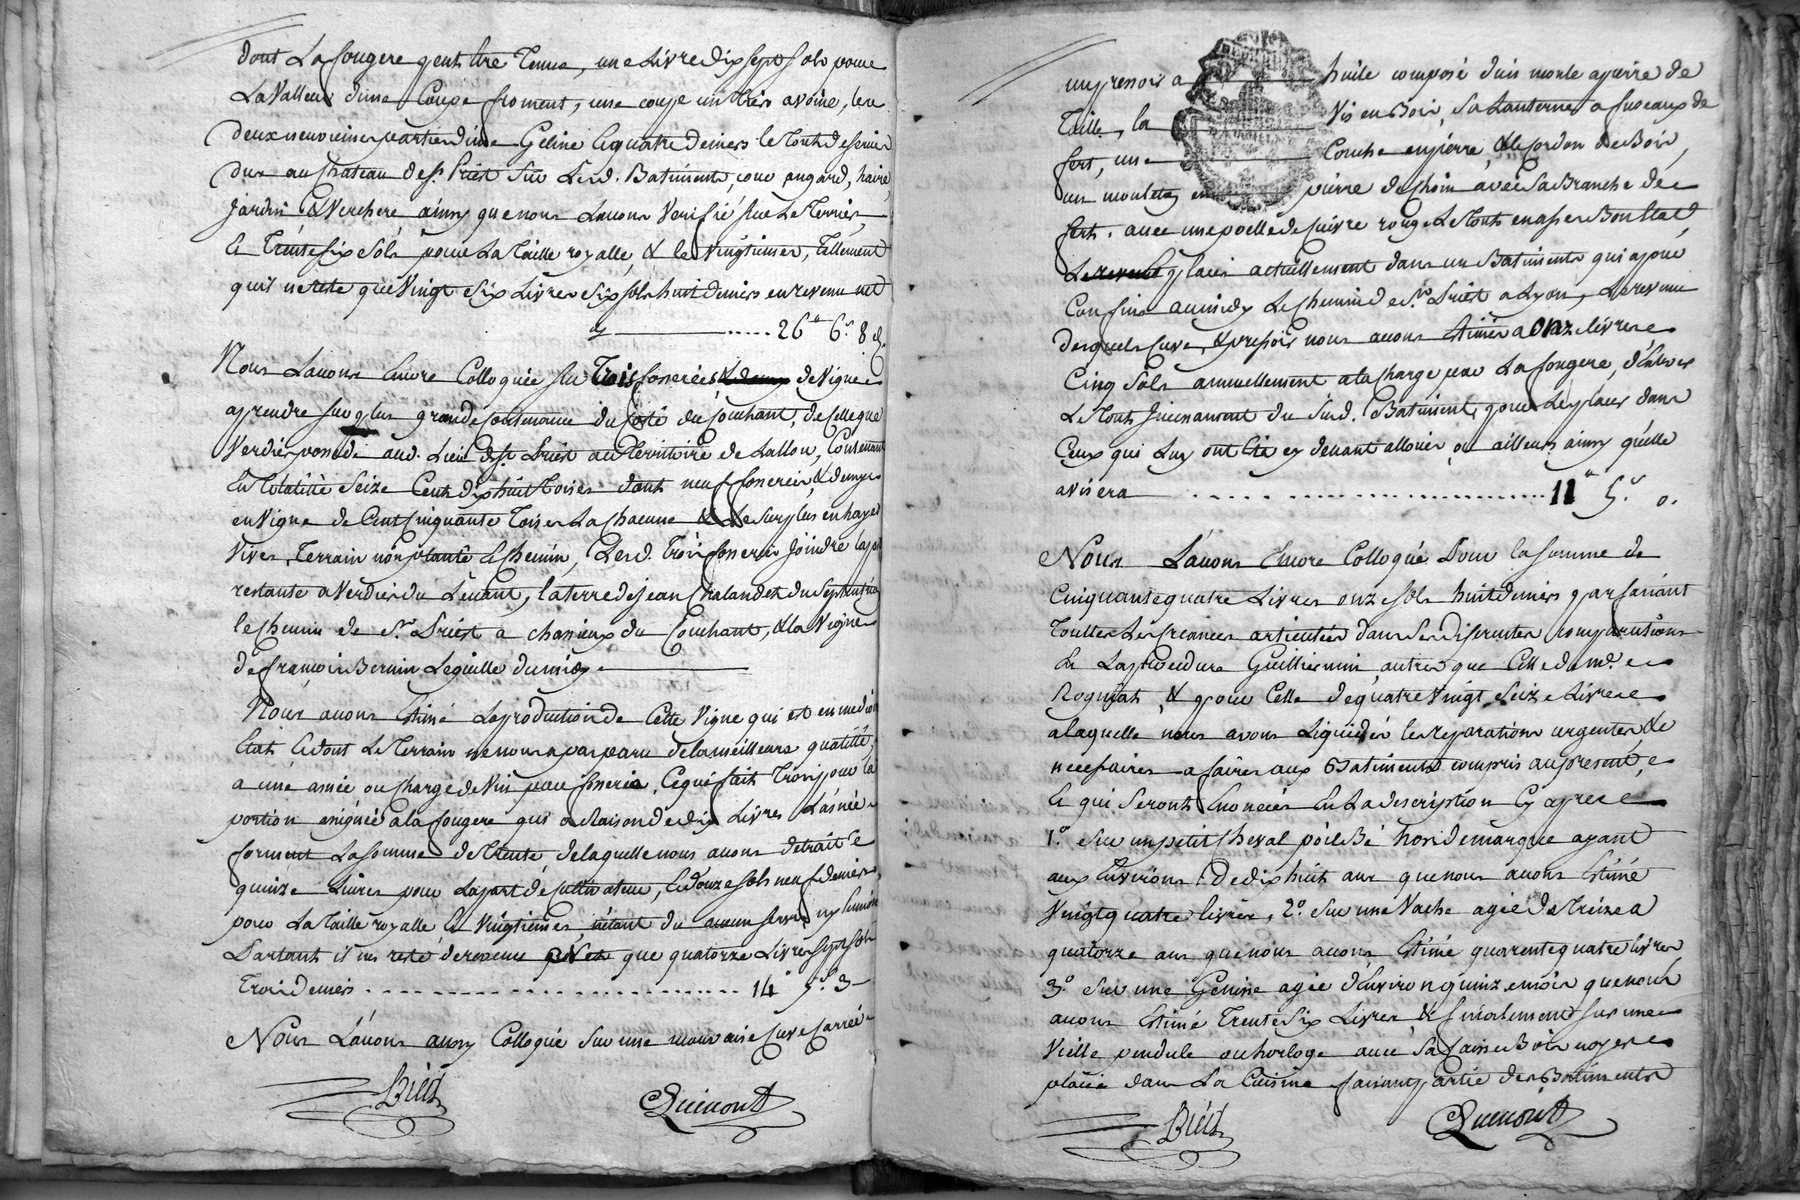 dont La fougere peut être Tenue, une Livre dix sept sols pour
La Valleur d'une Coupe froment, une coupe un tiers avoine, les
deux neuviemes partie d'une Geline & quatre deniers le tout de servis
dus au Chateau de St. Priest sur Lesd. Batiments, cour, angard,
Jardin & Verchere ainsy que nous Lavons Verifié sur Le Terrier
Et Trente six sols pour La Taille royalle, & les vingtiemes, Tellement
qu'il ne reste que Vingt six Livres six sols huit deniers en revenu net
cy ..... 26" 6s 8d
Nous Lavons Encore Colloquée sur Trois foncrées de Vigne
a prendre sur plus grande Contenance du Coté du Couchant, de Celle que
Verdier possede aud. Lieu de St. Priest au Territoire de Lallou, Contenant
En totalité Seize Cent dix huit toises dont neuf foncrées, & demye
en Vigne de Cent Cinquante Toises La Chacune & Le Surplus en hayes
Vives, Terrain non planté & Chemin, Lesd. Trois foncrées Joindre la part
restante a Verdier du Levant, la terre de Jean Chalandet du Septentrion
le Chemin de St. Priest a Chassieux du Couchant, & la Vigne
de françois Bernin du midy
Nous avons Estimé La production de Cette Vigne qui est en mediocre
Etat & dont Le Terrain ne nous a pas paru de la meilleure qualité,
a une asnée ou Charge de Vin par foncrée, Ce qui fait Trois pour la
portion assignée a la fougere qui a Raison de dix Livres L'asnée
forment La somme de Trente de laquelle nous avons detrait
quinze Livres pour La part de Cultivateur, & douze sols neuf deniers
pour La Taille royalle & Vingtiemes, n'etant du aucun servis
Partant il ne reste de revenu Net que quatorze Livres sept sols
Trois deniers ..... 14" 7s 3
Nous L'avons aussy Colloqué Sur une mauvaise Cuve Carrée
Biéd Quemont
un pressoir a huile composé d'un moule a pierre de
Taille, la Vis en Bois, Sa Lanterne a fuseaux de
fert, une Conche en pierre, & le Cordon de Bois,
un moulets en pierre de Choin avec Sa Branche de
fert, avec une poelle de Cuivre rouge Le Tout en assez Bon Etat,
placés actuellement dans un Batiment qui a pour
Confins au midy Le Chemin de St. Priest a Lyon, Le revenu
desquels Cuve, & pressoir nous avons Estimés a Onze livres
Cinq Sols annuellement a la Charge par La fougere, d'Enlever
Le Tout Incessament du Susd. Batiment, pour Les placer dans
Ceux qui Luy ont Eté cy devant alloués ou ailleurs ainsy qu'elle
avisera ..... 11" 5s 0.
Nous L'avons Encore Colloqué Pour la somme de
Cinquante quatre Livres onze sols huit deniers parfaisant
Toultes Les Creances articulées dans Ses differentes comparutions
de La procedure Guilliermin, autres que Celle de Md.
Rogniat, & pour Celle de quatre Vingt Seize Livres
a laquelle nous avons Liquidés les reparations urgentes, &
necessaires a faires aux Batiments compris au present,
& qui Seront Enoncées En La description Cy apres
1.° Sur un petit Cheval poil Bé hors de marque ayant
aux Environs de dix huit ans que nous avons Estimé
Vingt quatre livres, 2.° Sur une Vache agée de Treize a
quatorze ans que nous avons Estimé quarente quatre livres
3.° Sur une Genisse agée d'Environ quinze mois que nous
avons Estimé Trente Six Livres, & finalement sur une
Vielle pendule ou horloge avec Sa Caisse Bois noyer
placée dans La Cuisine faisant partie des Batiments
Biéd Quemont